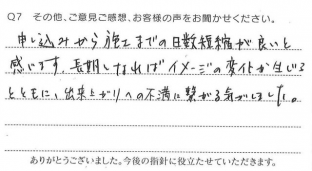 Q7 その他、ご意見ご感想、お客様の声をお聞かせください。
申し込みから施工までの日数短縮が良いと
感じます。長期になればイメージの変化が生じる
とともに、出来上がりへの不満に繋がる気がしました。
ありがとうございました。今後の指針に役立たせていただきます。